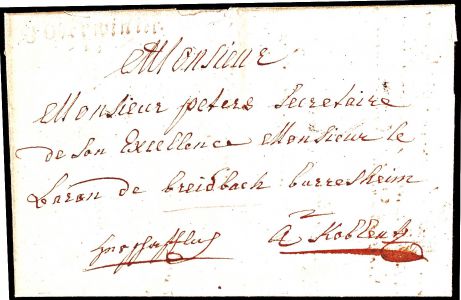 Monsieur
Monsieur peters Secretaire
de son Excellence Monsieur le
baron de breidbach burresheim
a Koblentz